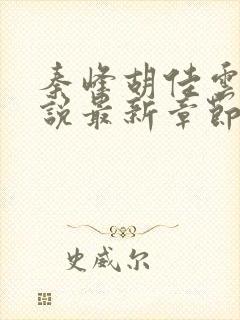 秦峰胡佳雲
說最新章節
史威尔